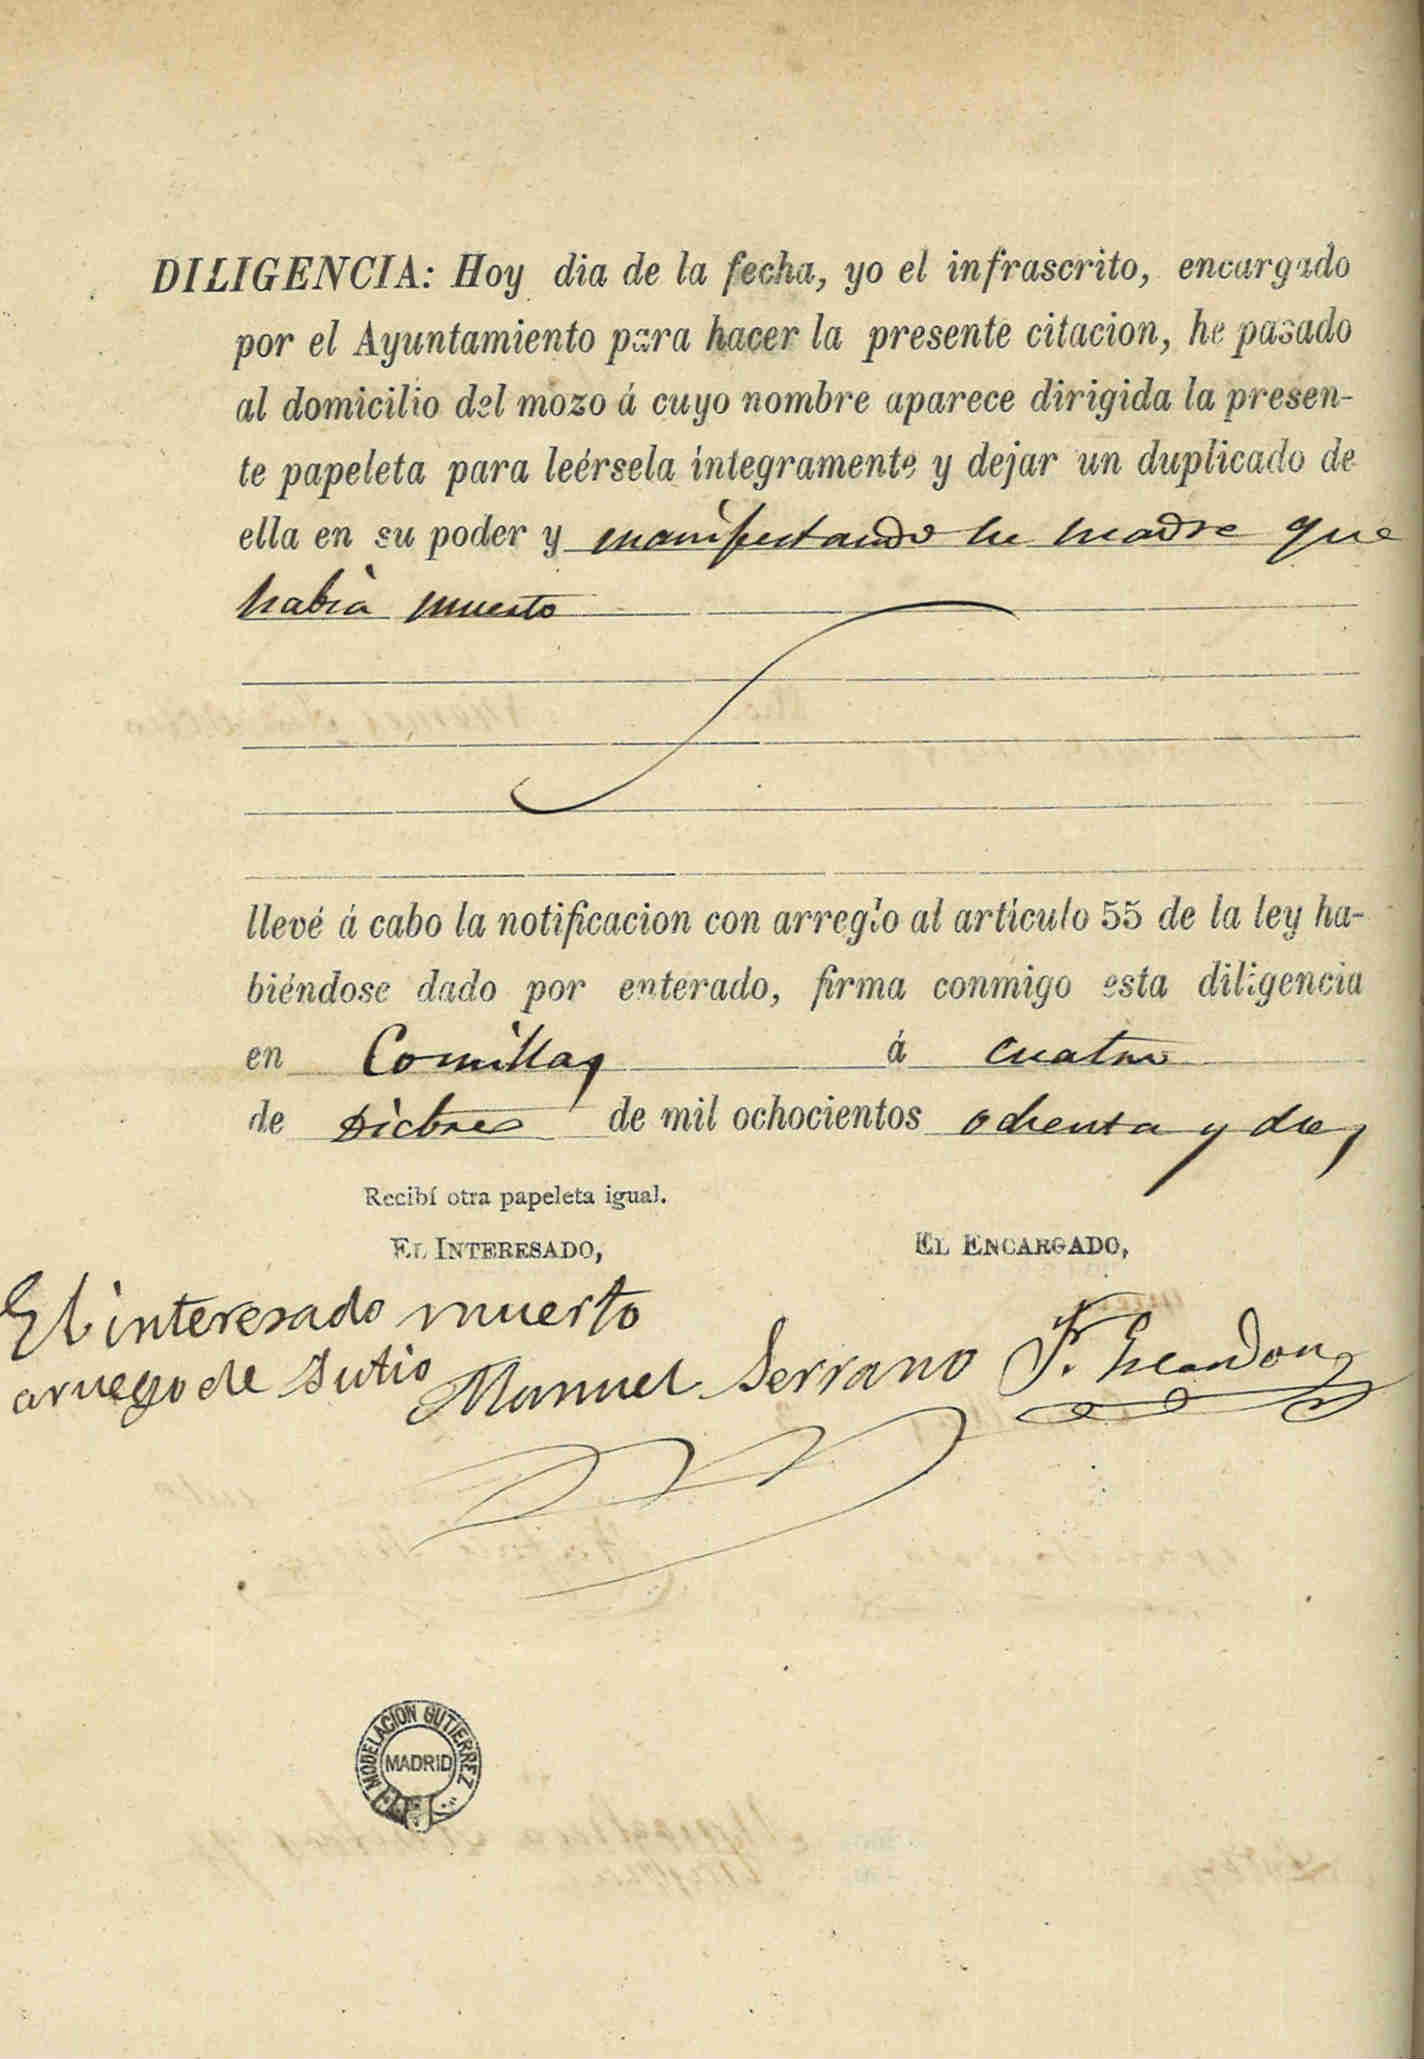 DILIGENCIA: Hoy dia de la fecha, yo el infrascrito, encargado
por el Ayuntamiento para hacer la presente citacion, he pasado
al domicilio del mozo á cuyo nombre aparece dirigida la presen-
te papeleta para leérsela íntegramente y dejar un duplicado de
ella en su poder y manifestando su madre que
había muerto
llevé á cabo la notificacion con arreglo al artículo 55 de la ley ha-
biéndose dado por enterado, firma conmigo esta diligencia
en Comillas á cuatro
de Dicbre de mil ochocientos ochenta y dos
Recibí otra papeleta igual.
EL INTERESADO, EL ENCARGADO,
El interesado muerto
aruego de sutio Manuel Serrano F.
MODELACION GUTIERREZ
MADRID